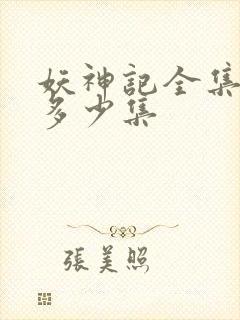 妖神記全集
多少集
張美照